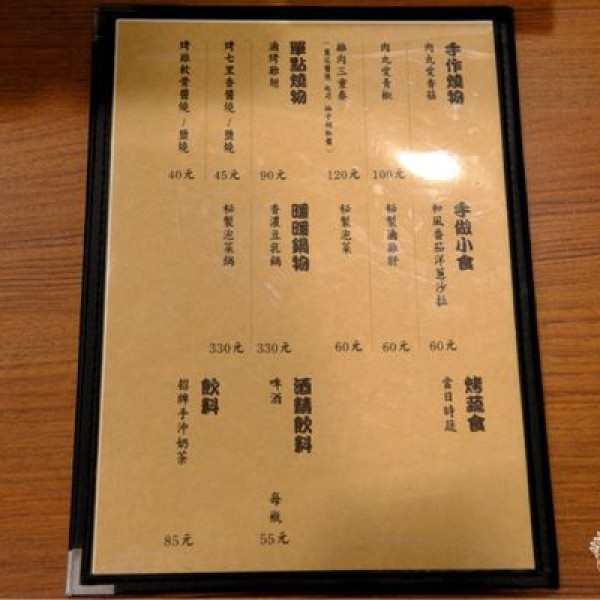 手作燒物
肉丸愛香菇
肉丸愛青椒
100元
雞肉三重奏
120元
單點燒物
滷烤雞翅
90元
烤七里香醬燒/鹽燒
45元
烤雞軟骨醬燒/鹽燒
40元
手做小食
和風番茄洋蔥沙拉
60元
秘製滷雞肝
60元
秘製泡菜
60元
暖暖鍋物
香濃豆乳鍋
330元
秘製泡菜鍋
330元
烤蔬食
當日時蔬
酒精飲料
啤酒
每瓶
55元
飲料
招牌手沖奶茶
85元